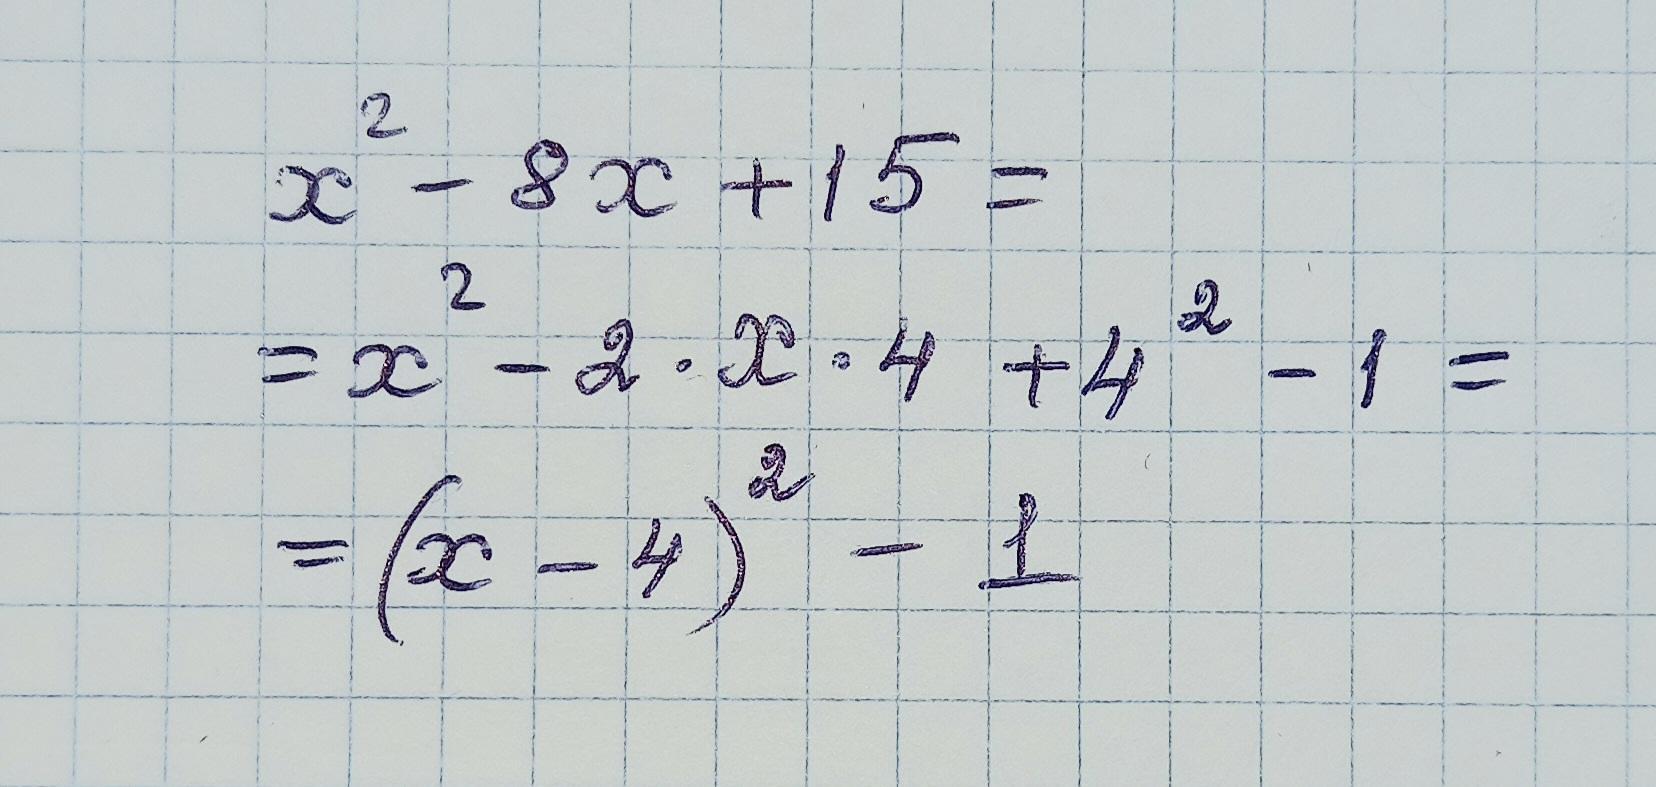 x² - 8x + 15 =
= x² - 2 · x · 4 + 4² - 1 =
= (x - 4)² - 1